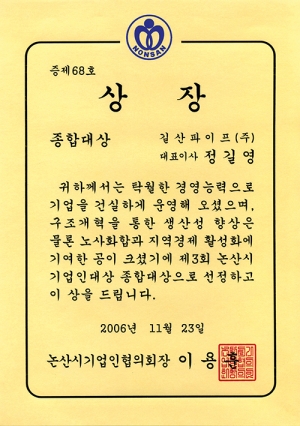 NONSAN
증제68호
상 장
종합대상 길산파이프(주)
대표이사 정길영
귀하께서는 탁월한 경영능력으로
기업을 건실하게 운영해 오셨으며,
구조개혁을 통한 생산성 향상은
물론 노사화합과 지역경제 활성화에
기여한 공이 크셨기에 제3회 논산시
기업인대상 종합대상으로 선정하고
이 상을 드립니다.
2006년 11월 23일
논산시기업인협의회장 이 용 훈